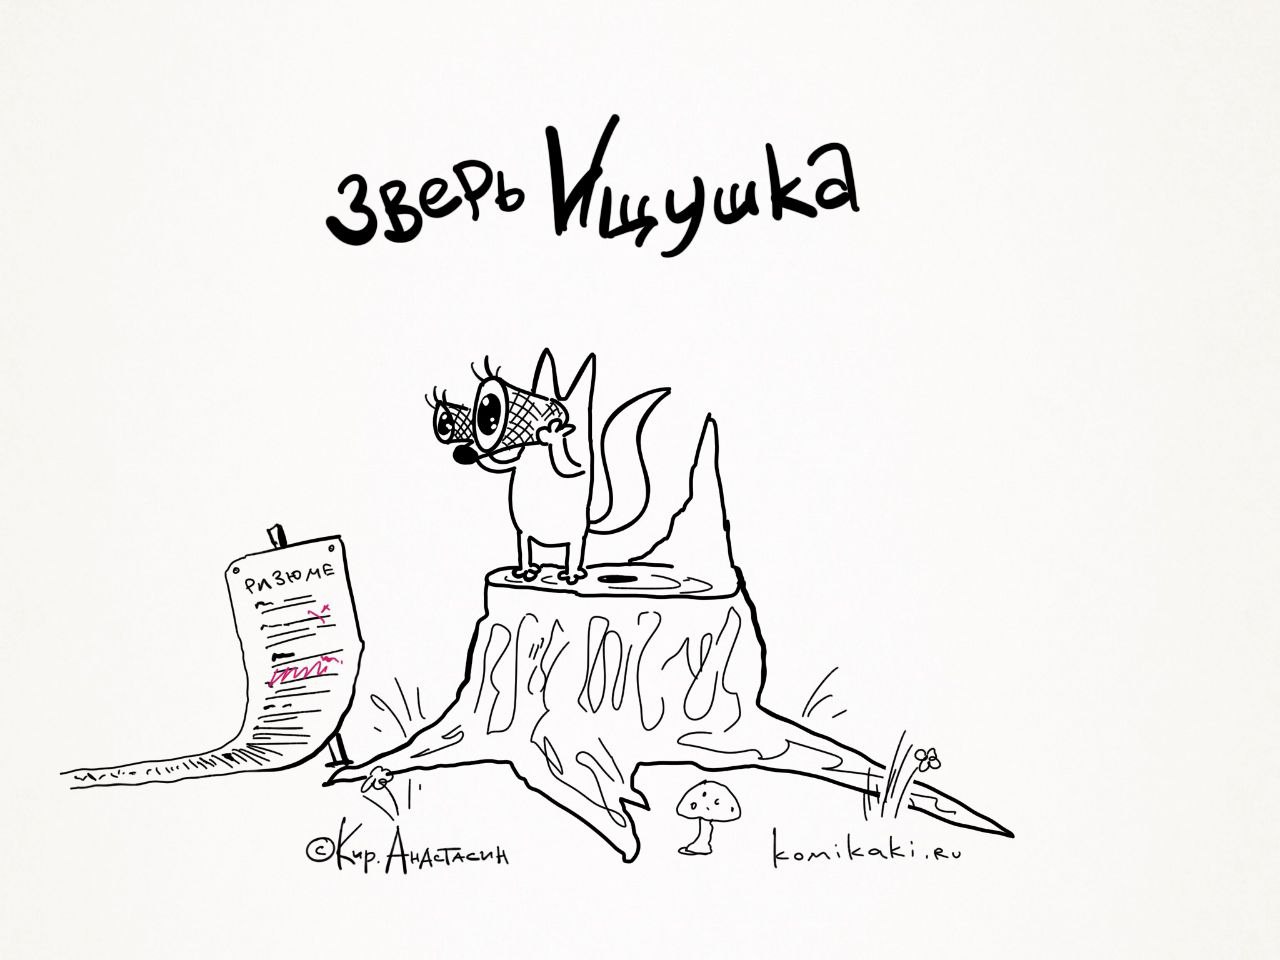 зверь Ищушка
РИЗЮМЕ
© Кир. Анастасин
komikaki.ru